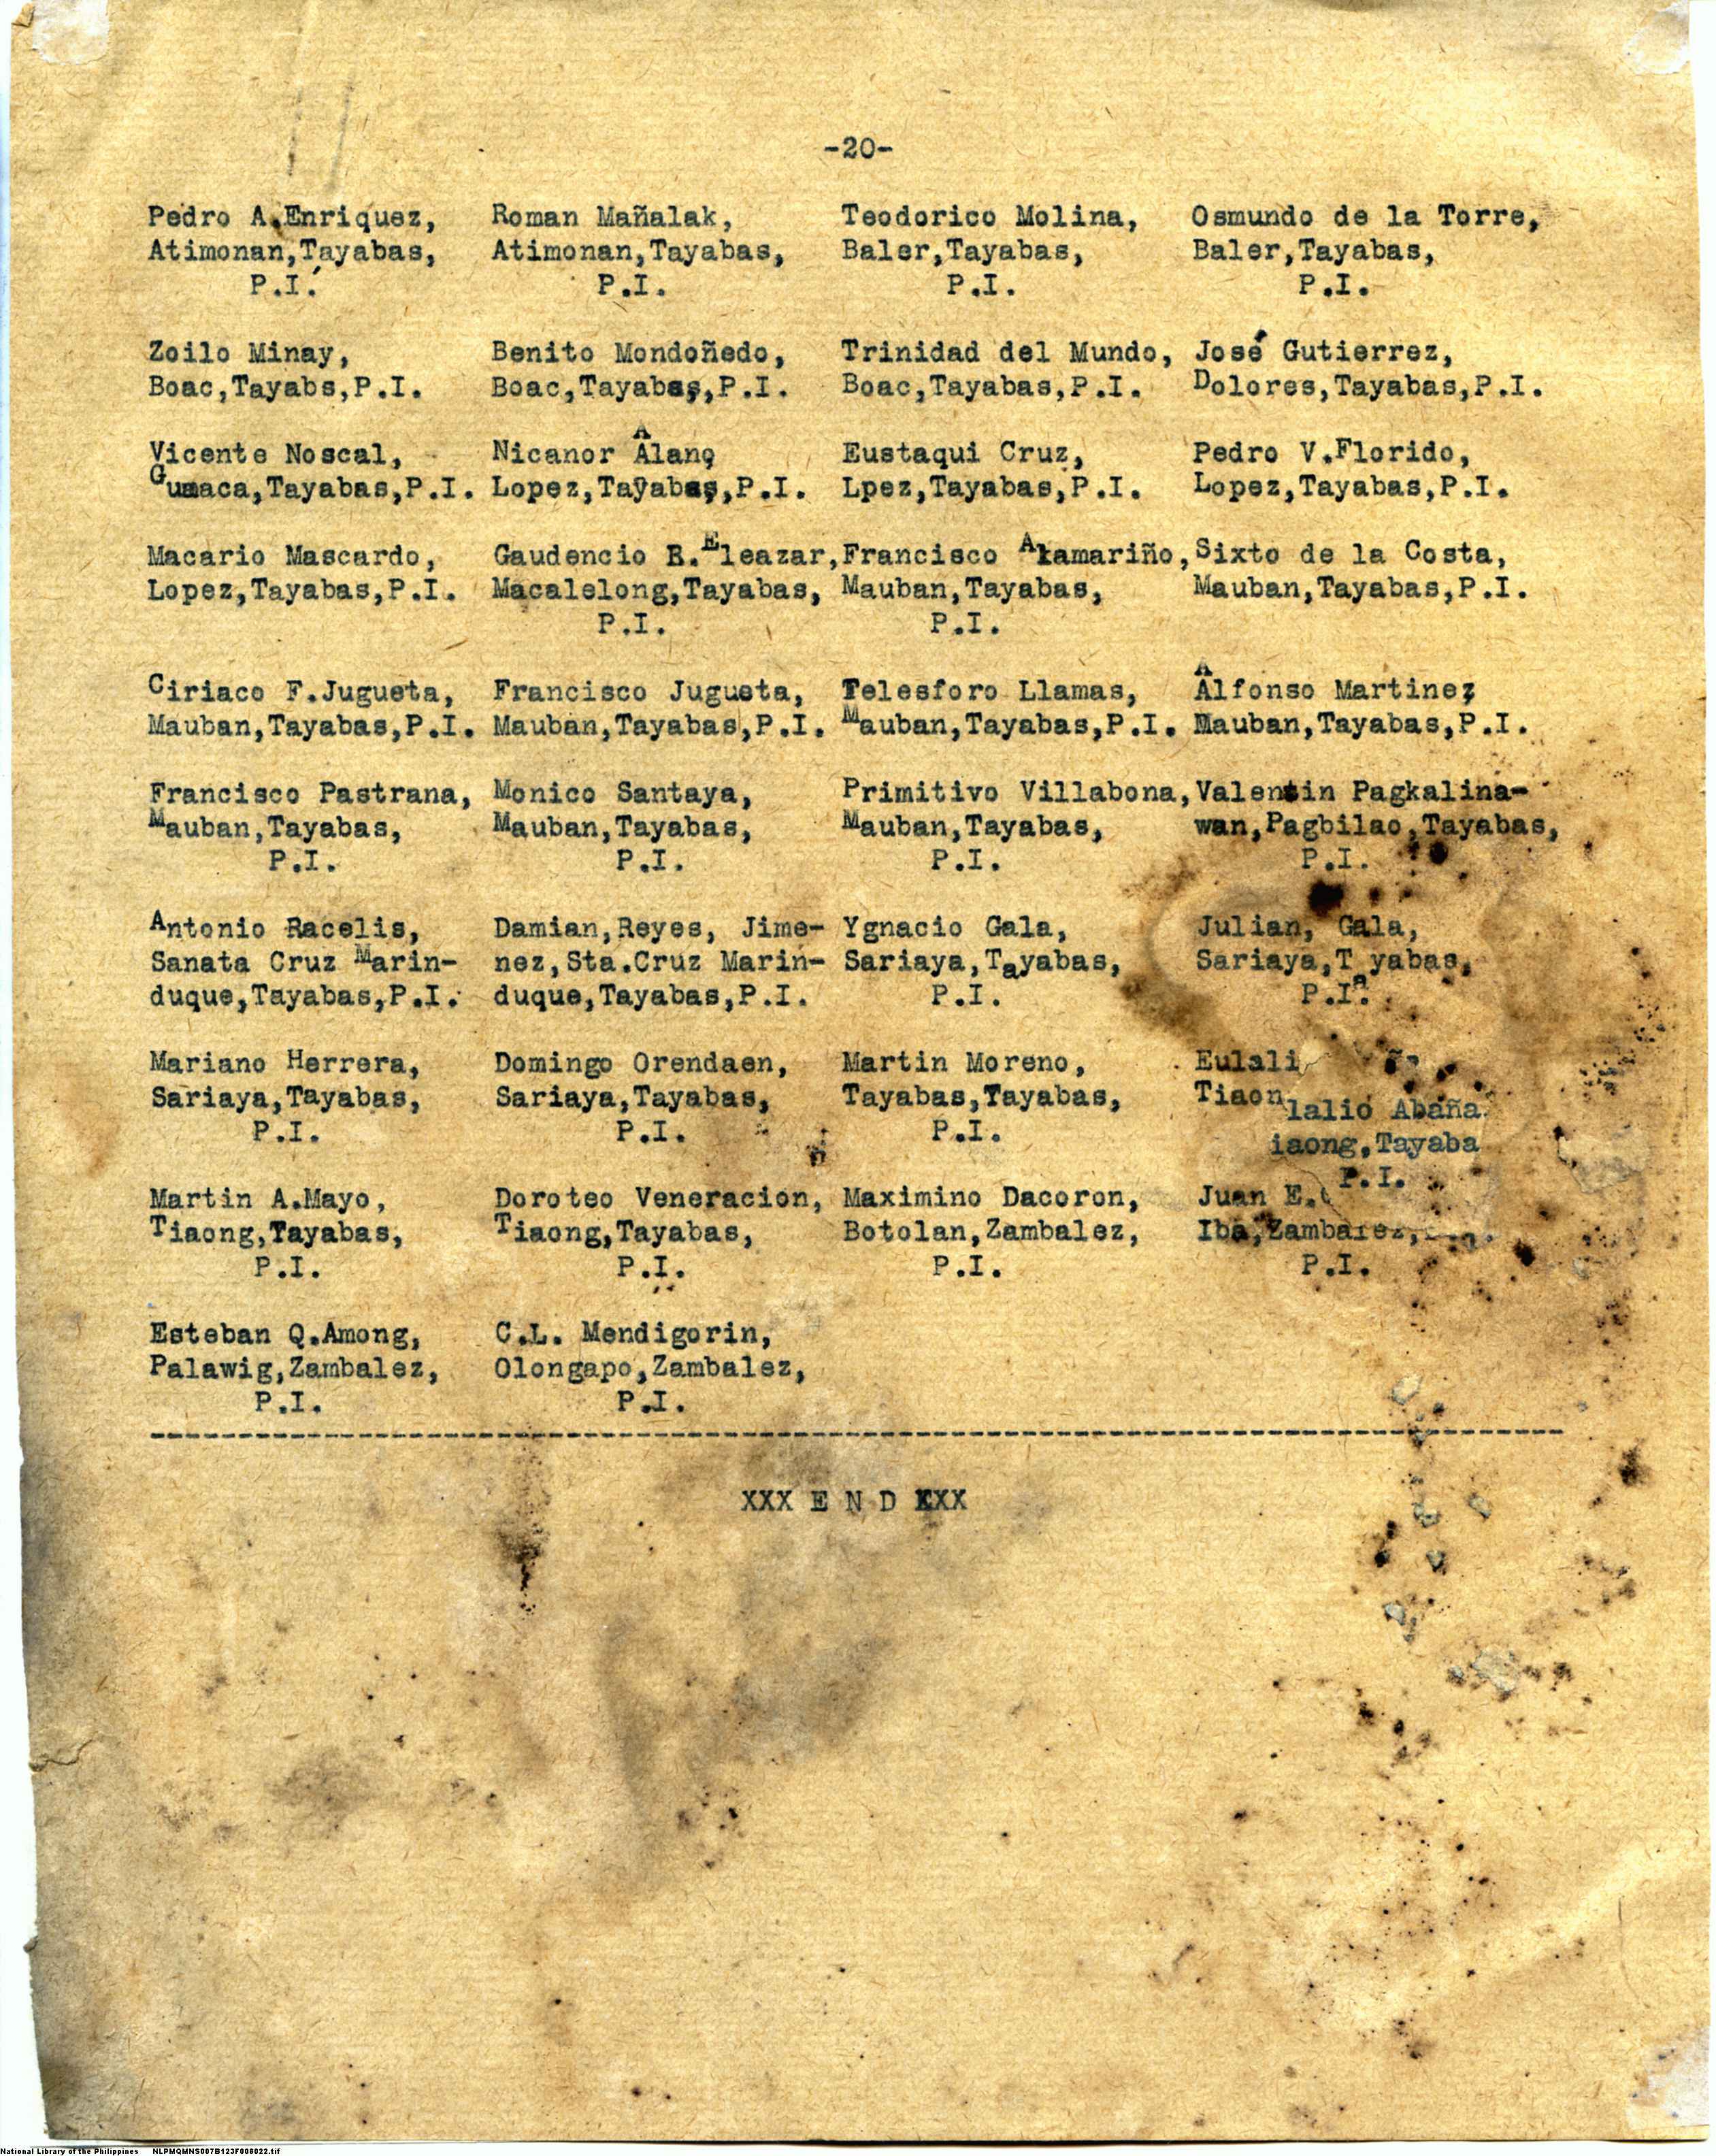 -20-
Pedro A.Enriquez, Roman Mañalak, Teodorico Molina, Osmundo de la Torre,
Atimonan,Tayabas, Atimonan,Tayabas, Baler,Tayabas, Baler,Tayabas,
P.I. P.I. P.I. P.I.
Zoilo Minay, Benito Mondoñedo, Trinidad del Mundo, José Gutierrez,
Boac,Tayabs,P.I. Boac,Tayabas,P.I. Boac,Tayabas,P.I. Dolores,Tayabas,P.I.
Vicente Noscal, Nicanor Alano Eustaqui Cruz, Pedro V.Florido,
Gumaca,Tayabas,P.I. Lopez,Tayabas,P.I. Lpez,Tayabas,P.I. Lopez,Tayabas,P.I.
Macario Mascardo, Gaudencio E.Eleazar, Francisco Alamariño, Sixto de la Costa,
Lopez,Tayabas,P.I. Macalelong,Tayabas, Mauban,Tayabas, Mauban,Tayabas,P.I.
P.I. P.I.
Ciriaco F.Jugueta, Francisco Jugueta, Telesforo Llamas, Alfonso Martinez
Mauban,Tayabas,P.I. Mauban,Tayabas,P.I. Mauban,Tayabas,P.I. Mauban,Tayabas,P.I.
Francisco Pastrana, Monico Santaya, Primitivo Villabona, Valentin Pagkalina-
Mauban,Tayabas, Mauban,Tayabas, Mauban,Tayabas, wan,Pagbilao,Tayabas,
P.I. P.I. P.I. P.I.
Antonio Racelis, Damian,Reyes, Jime- Ygnacio Gala, Julian, Gala,
Sanata Cruz Marin- nez,Sta.Cruz Marin- Sariaya,Tayabas, Sariaya,Tayabas,
duque,Tayabas,P.I. duque,Tayabas,P.I. P.I. P.I.
Mariano Herrera, Domingo Orendaen, Martin Moreno, Eulali
Sariaya,Tayabas, Sariaya,Tayabas, Tayabas,Tayabas, Tiaon
lalio Abaña
P.I. P.I. P.I.
iaong,Tayaba
P.I.
Martin A.Mayo, Doroteo Veneracion, Maximino Dacoron, Juan E.
Tiaong,Tayabas, Tiaong,Tayabas, Botolan,Zambalez, Iba,Zambalez,
P.I. P.I. P.I. P.I.
Esteban Q.Among, C.L. Mendigorin,
Palawig,Zambalez, Olongapo,Zambalez,
P.I. P.I.
XXX E N D XXX
National Library of the Philippines NLPMQMNS007B123F008022.tif